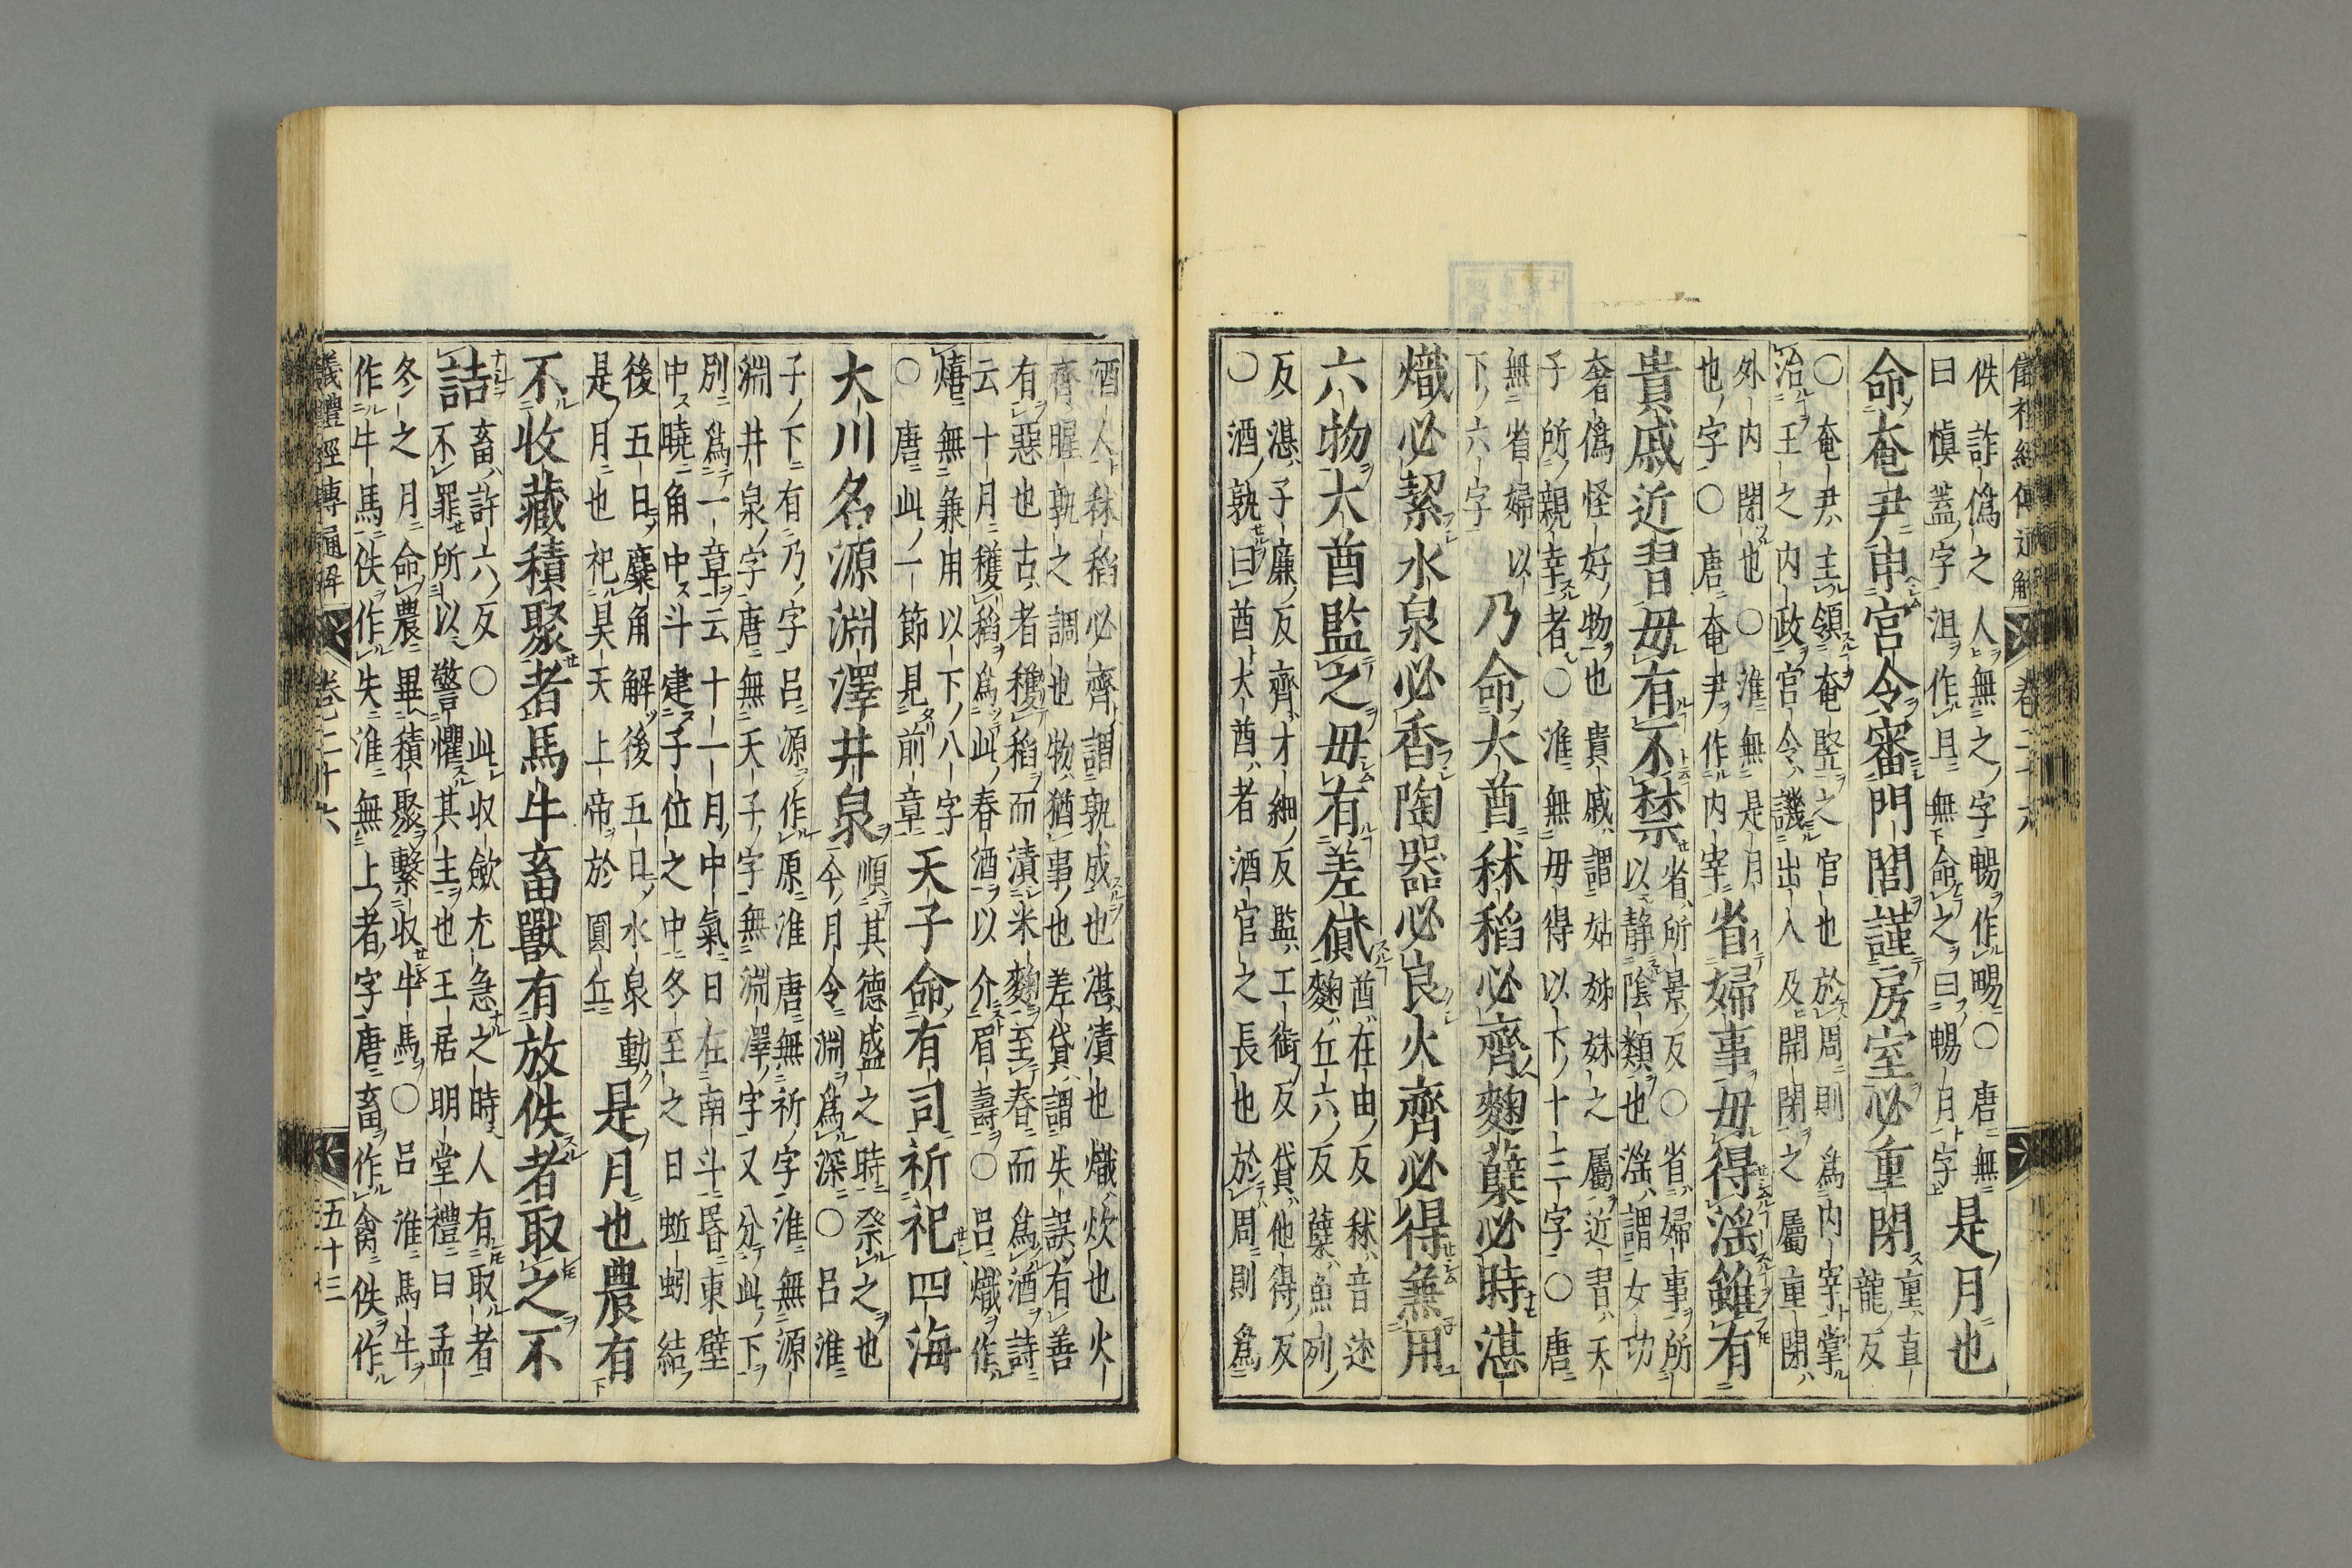 儀禮經傳通解 卷二十六
佚詐偽之人無之字暢作畼〇唐無
曰慎蓋字沮作且無命之曰暢月字
是月也
命奄尹申宮令審門閭謹房室必重閉
重直
龍反
〇奄尹主領奄豎之官也於周則為內宰掌
治王之內政宮令譏出入及開閉之屬重閉
外內閉也〇淮無是月
也字〇唐奄尹作內宰
省婦事毋得淫雖有
貴戚近習毋有不禁
省所景反〇省婦事所
以靜陰類也淫謂女功
奢偽怪好物也貴戚謂姑姊妹之屬近習天
子所親幸者〇淮無毋得以下十三字〇唐
無省婦以
下六字
乃命大酋秫稻必齊麴糱必時湛
熾必絜水泉必香陶器必良火齊必得兼用
六物大酋監之毋有差貸
酋在由反秫音述
麴丘六反糱魚列
反湛子廉反齊才細反監工銜反貸他得反
〇酒孰曰酋大酋者酒官之長也於周則為
酒人秫稻必齊謂孰成也湛漬也熾炊也火
齊腥孰之調也物猶事也差貸謂失誤有善
有惡也古者穫稻而漬米麴至春而為酒詩
云十月穫稻為此春酒以介眉壽〇呂熾作
熺無兼用以下八字
〇唐此一節見前章
天子命有司祈祀四海
大川名源淵澤井泉
順其德盛之時祭之也
今月令淵為深〇呂淮
子下有乃字呂源作原淮唐無祈字淮無源
淵井泉字唐無天子字無淵澤字又分此下
別為一章云十一月中氣日在南斗昏東壁
中曉角中斗建子位之中冬至之日蚯蚓結
後五日麋角解後五日水泉動
是月也祀昊天上帝於圓丘
是月也農有
不收藏積聚者馬牛畜獸有放佚者取之不
詰
畜許六反〇此收斂尤急之時人有取者
不罪所以警懼其主也王居明堂禮曰孟
冬之月命農畢積聚繫收牛馬〇呂淮馬牛
作牛馬佚作失淮無上者字唐畜作禽佚作
儀禮經傳通解 卷二十六 五十三